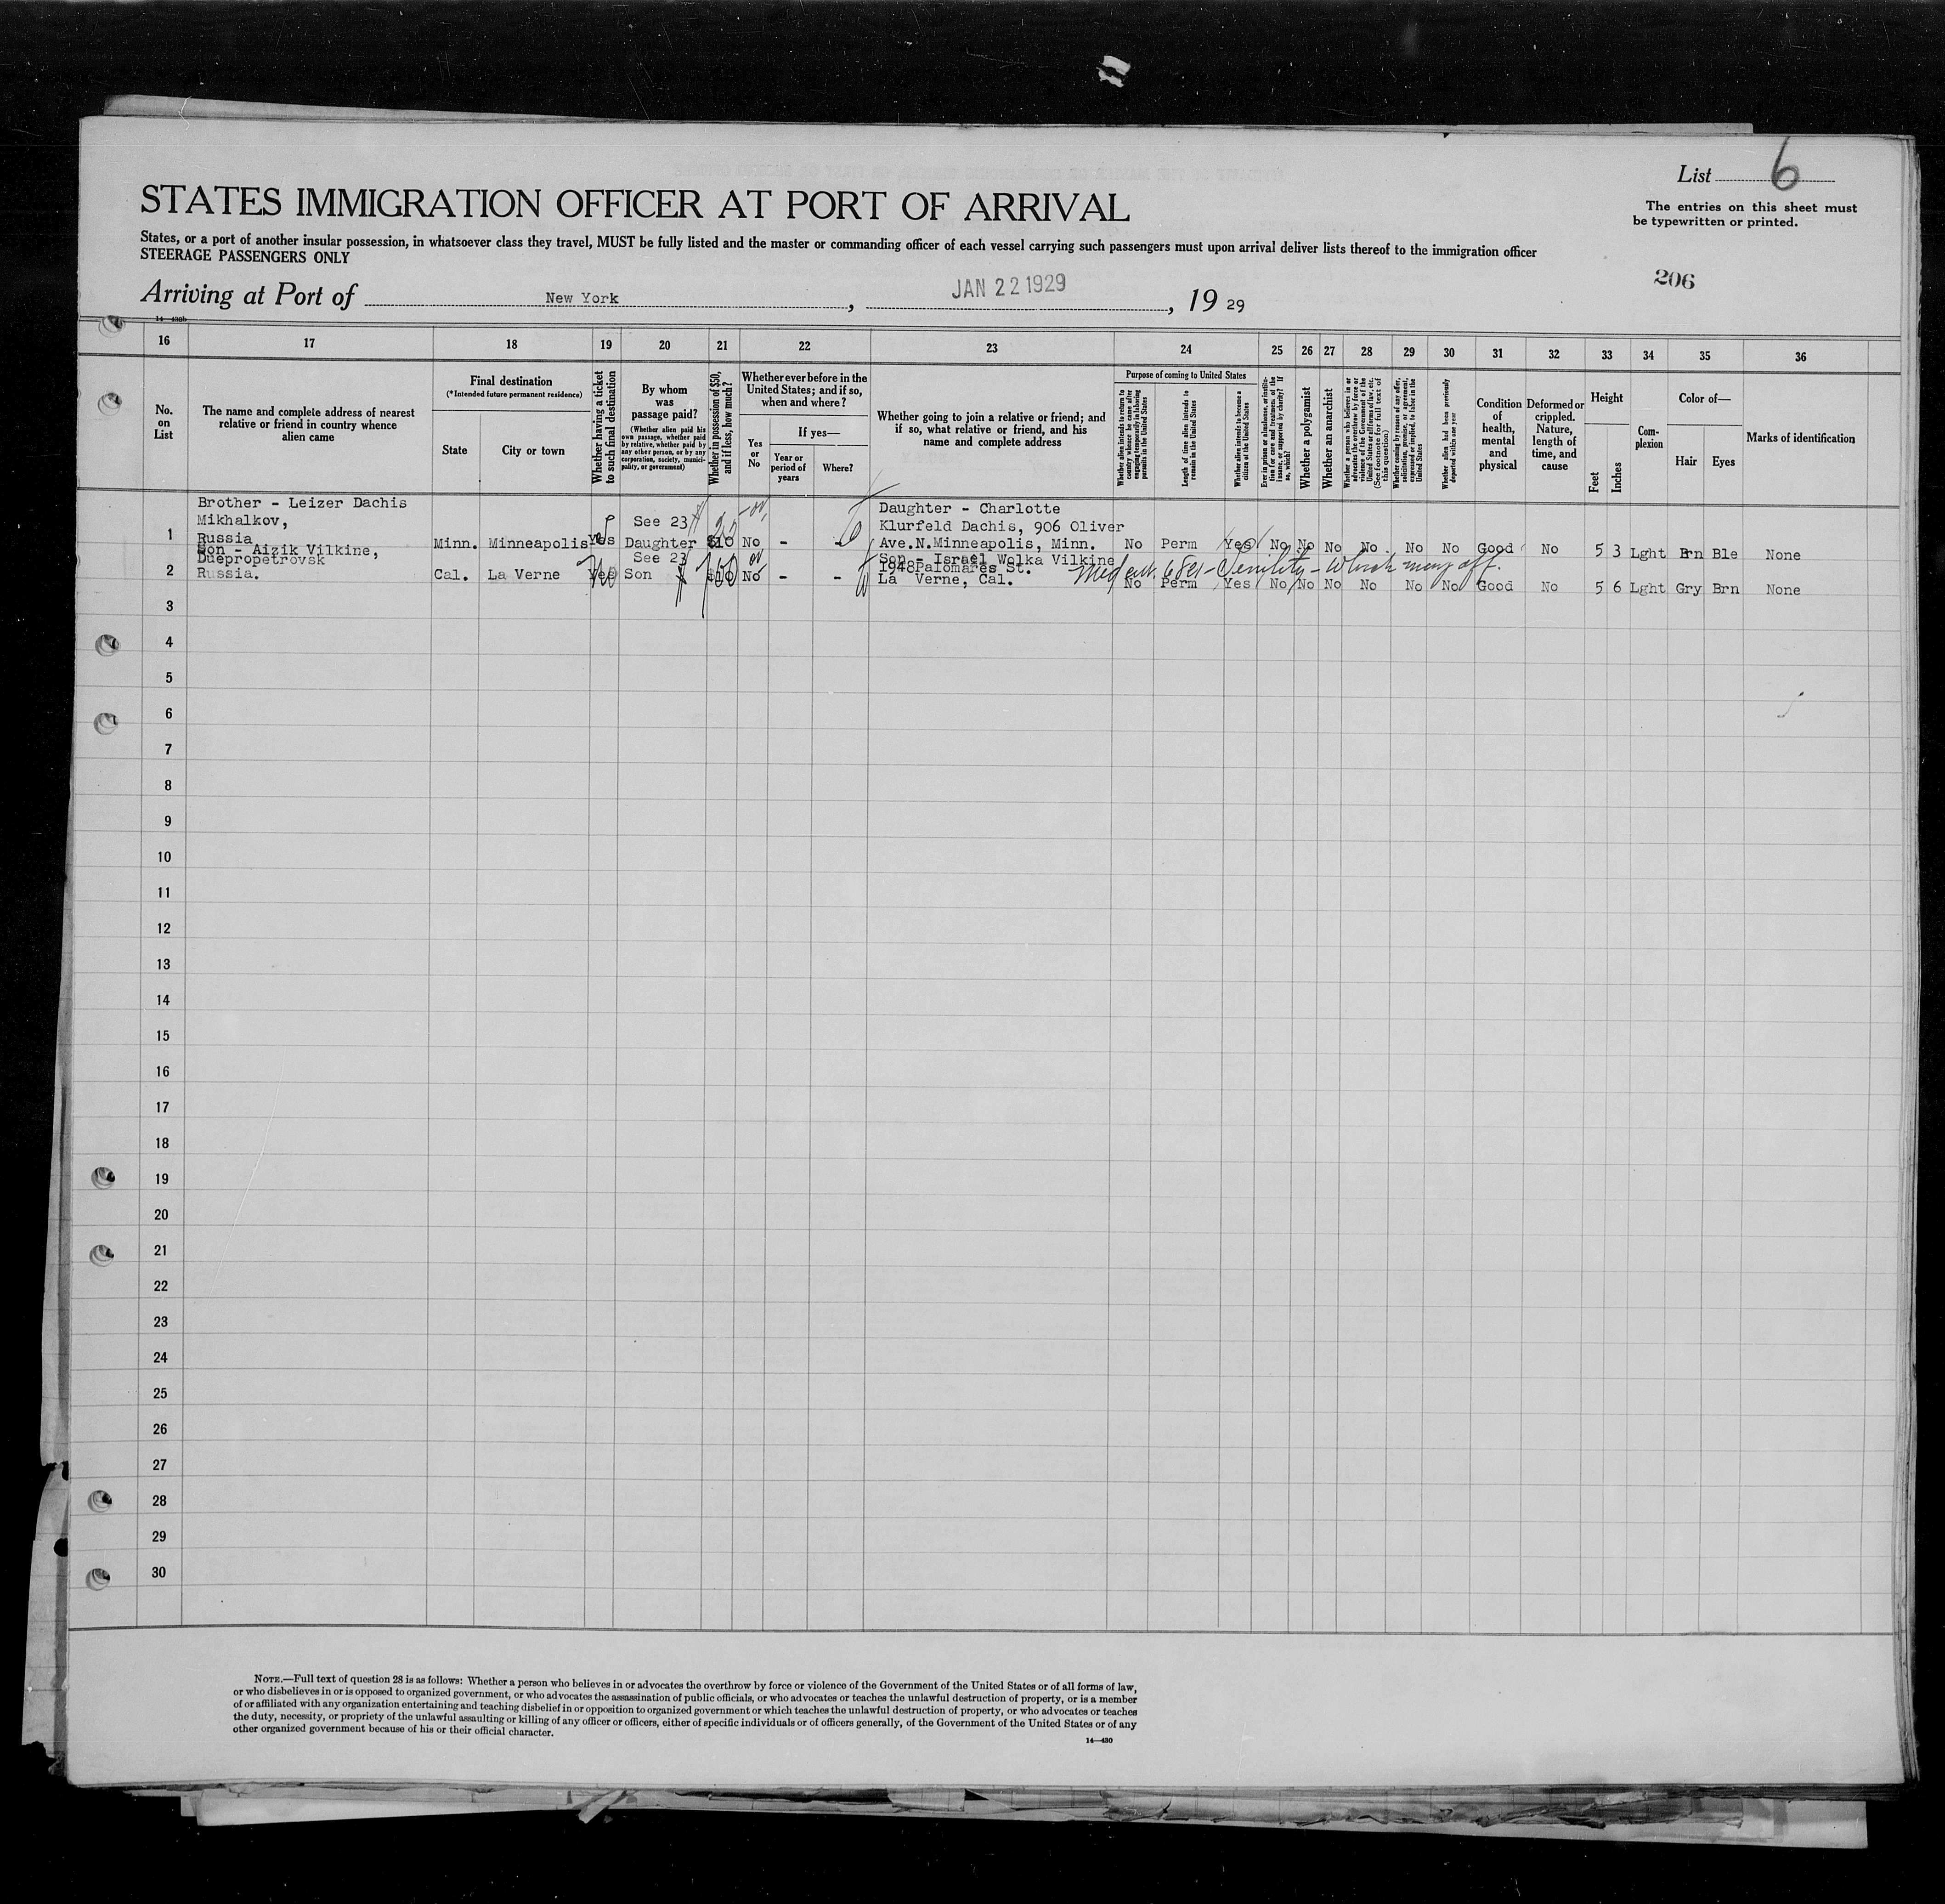 List 6
STATES IMMIGRATION OFFICER AT PORT OF ARRIVAL
The entries on this sheet must
be typewritten or printed.
States, or a port of another insular possession, in whatsoever class they travel, MUST be fully listed and the master or commanding officer of each vessel carrying such passengers must upon arrival deliver lists thereof to the immigration officer
STEERAGE PASSENGERS ONLY
206
Arriving at Port of New York, JAN 22 1929, 19 29
14—430b
16 17 18 19 20 21 22 23 24 25 26 27 28 29 30 31 32 33 34 35 36
No.
on
List
The name and complete address of nearest
relative or friend in country whence
alien came
Final destination
(*Intended future permanent residence)
State
City or town
Whether having a ticket
to such final destination
By whom
was
passage paid?
(Whether alien paid his
own passage, whether paid
by relative, whether paid by
any other person, or by any
corporation, society, munici-
pality, or government)
Whether in possession of $50,
and if less, how much?
Whether ever before in the
United States; and if so,
when and where?
Yes
or
No
If yes—
Year or
period of
years
Where?
Whether going to join a relative or friend; and
if so, what relative or friend, and his
name and complete address
Purpose of coming to United States
Whether alien intends to return to
country whence he came after
engaging temporarily in laboring
pursuits in the United States
Length of time alien intends to
remain in the United States
Whether alien intends to become a
citizen of the United States
Ever in prison or almshouse, or institu-
tion for care and treatment of the
insane, or supported by charity? If
so, which?
Whether a polygamist
Whether an anarchist
Whether a person who believes in or
advocates the overthrow by force or
violence of the Government of the
United States or all forms of law, etc.
(See footnote for full text of
this question)
Whether coming by reason of any offer,
solicitation, promise, or agreement,
expressed or implied, to labor in the
United States
Whether alien had been previously
deported within one year
Condition
of
health,
mental
and
physical
Deformed or
crippled.
Nature,
length of
time, and
cause
Height
Feet
Inches
Com-
plexion
Color of—
Hair
Eyes
Marks of identification
Brother - Leizer Dachis
Mikhalkov,
Russia
1 Minn. Minneapolis Yes
See 23
Daughter $10 No - -
Daughter - Charlotte
Klurfeld Dachis, 906 Oliver
Ave.N.Minneapolis, Minn. No Perm Yes No No No No No No Good No 5 3 Lght Brn Ble None
Son - Aizik Vilkine,
Dnepropetrovsk
Russia.
2 Cal. La Verne Yes
See 23
Son No - -
Son - Israel Wolka Vilkine
1948 Palomares St.
La Verne, Cal.
Senility - which may aff.
No Perm Yes No No No No No No Good No 5 6 Lght Gry Brn None
3
4
5
6
7
8
9
10
11
12
13
14
15
16
17
18
19
20
21
22
23
24
25
26
27
28
29
30
NOTE.—Full text of question 28 is as follows: Whether a person who believes in or advocates the overthrow by force or violence of the Government of the United States or of all forms of law,
or who disbelieves in or is opposed to organized government, or who advocates the assassination of public officials, or who advocates or teaches the unlawful destruction of property, or is a member
of or affiliated with any organization entertaining and teaching disbelief in or opposition to organized government or which teaches the unlawful destruction of property, or who advocates or teaches
the duty, necessity, or propriety of the unlawful assaulting or killing of any officer or officers, either of specific individuals or of officers generally, of the Government of the United States or of any
other organized government because of his or their official character.
14—430